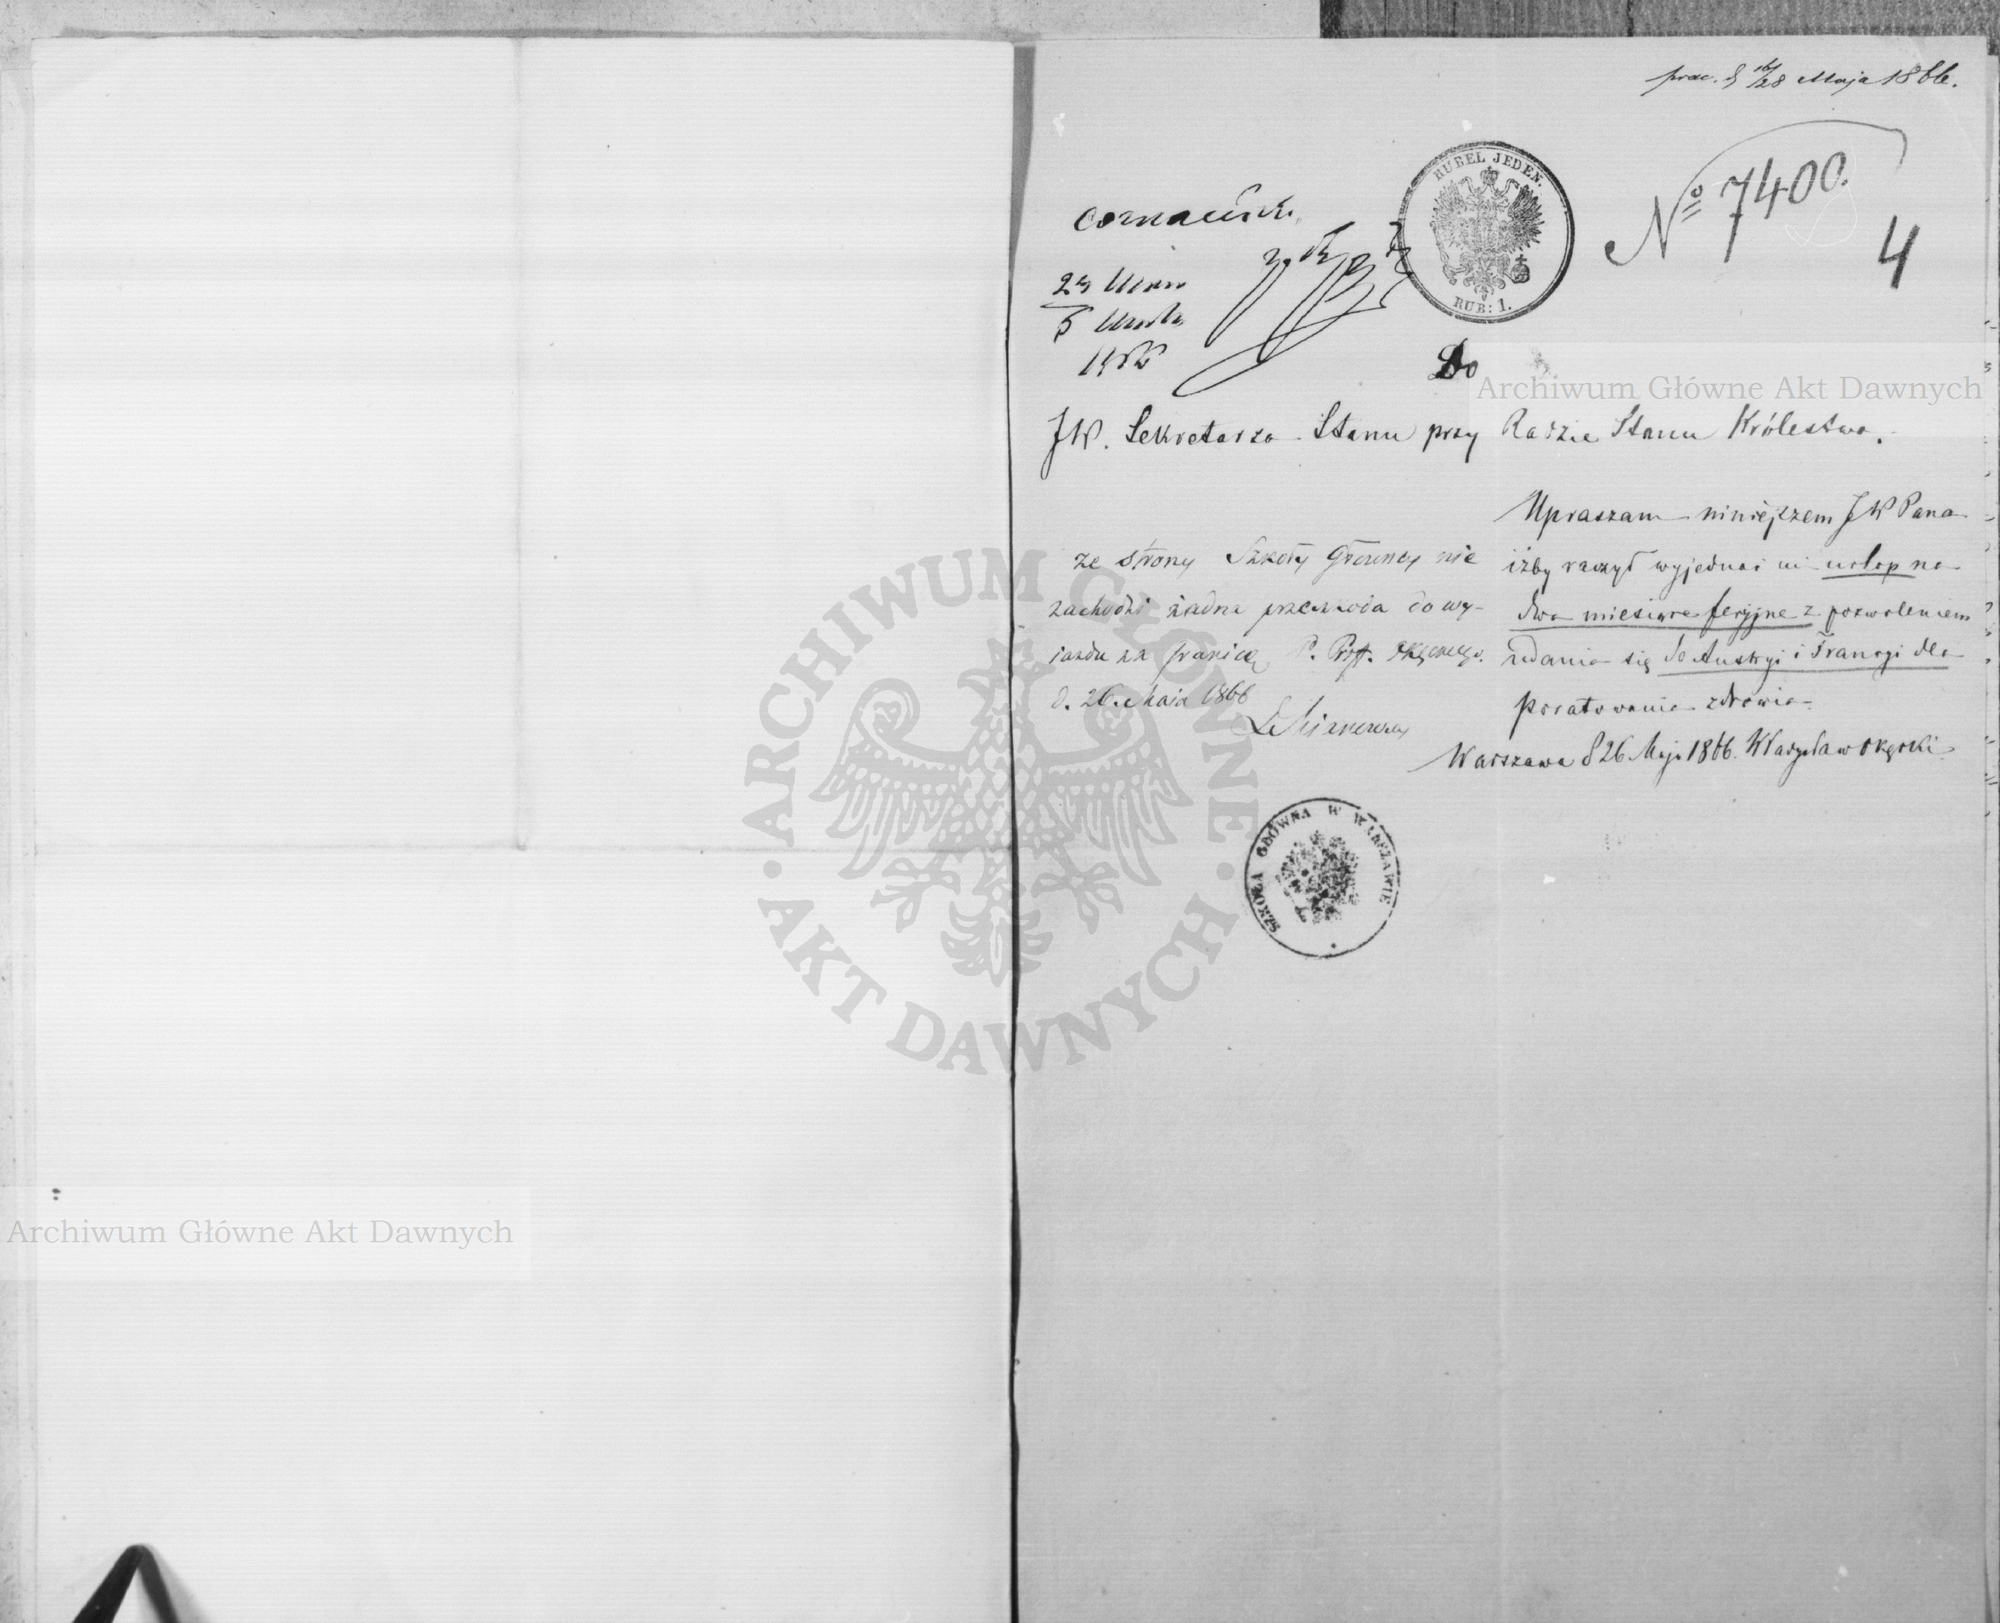 d 16/28 Maja 1866.
RUBEL JEDEN.
RUB: 1.
No 7400.
4
1866
Do
JW. Sekretarza Stanu przy Radzie Stanu Królestwa.
Upraszam niniejszem JW Pana
iżby raczył wyjednać mi urlop na
dwa miesiące feryjne z pozwoleniem
udania się do Austryi i Francyi dla
poratowania zdrowia.
Warszawa d 26 Maja 1866. Władysław Okęcki
ze strony Szkoły Głównej nie
zachodzi żadna przeszkoda do wy-
jazdu za granicę P. Prof. Okęckiego.
d. 26. Maja 1866
SZKOŁA GŁÓWNA W WARSZAWIE
Archiwum Główne Akt Dawnych
ARCHIWUM GŁÓWNE
AKT DAWNYCH
Archiwum Główne Akt Dawnych